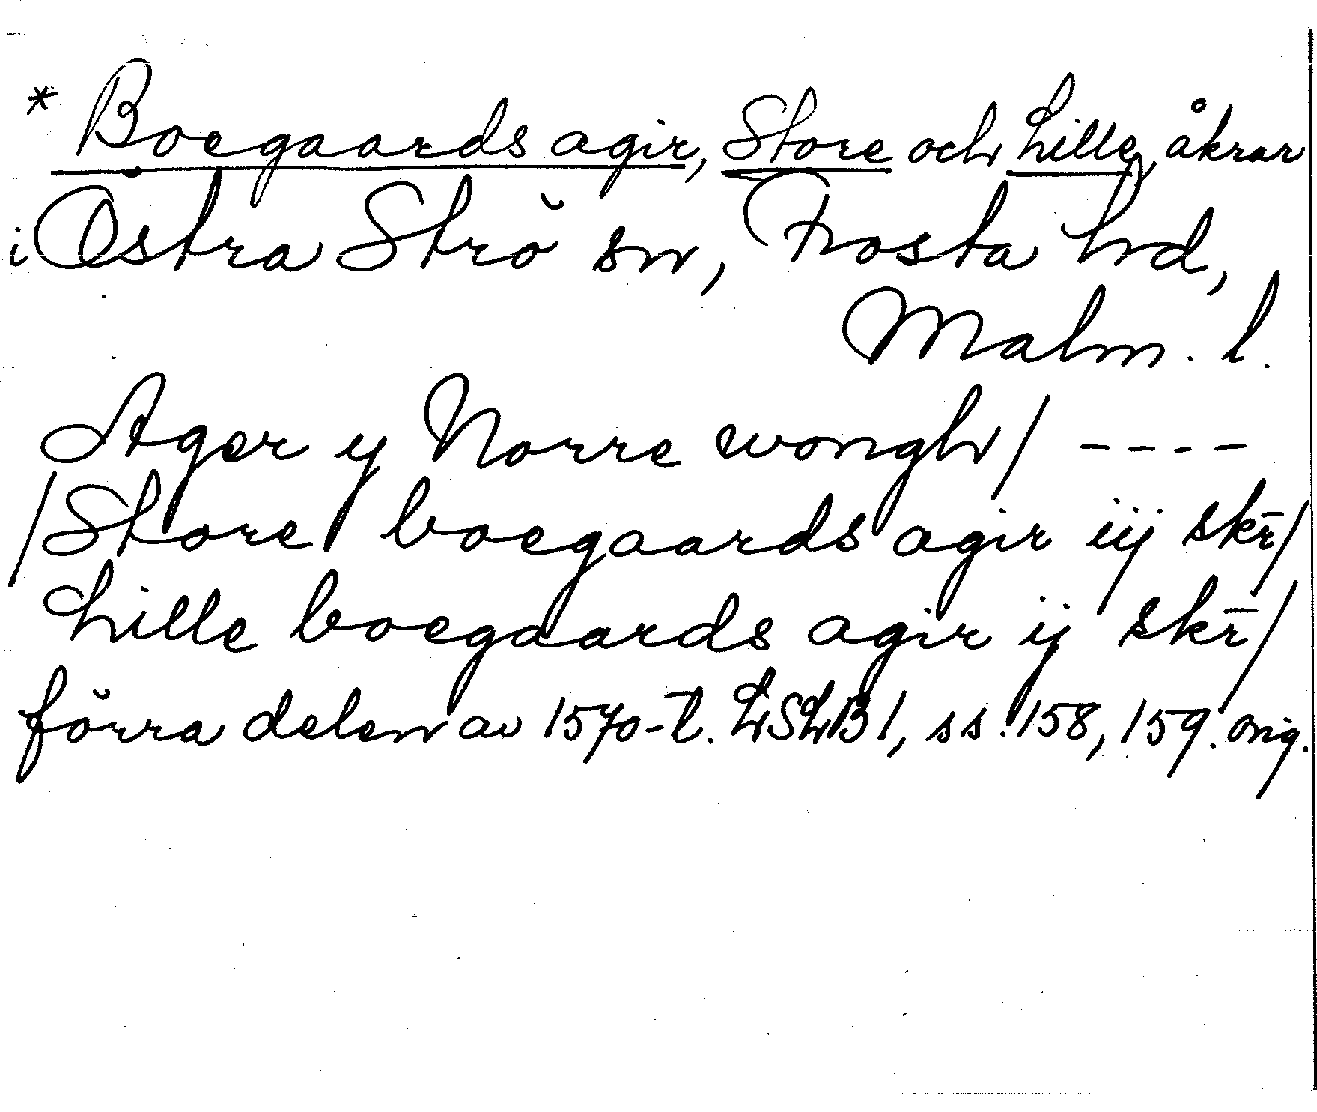 * Boegaards agir, Store och Lille, åkrar
i Östra Strö sn, Frosta hd,
Malm. l.
Ager y Norre wongh/ ----
/Store boegaards agir iij skr̄/
Lille boegaards agir ij skr̄/
förra delen av 1570-t. LSLB 1, ss. 158, 159. orig.